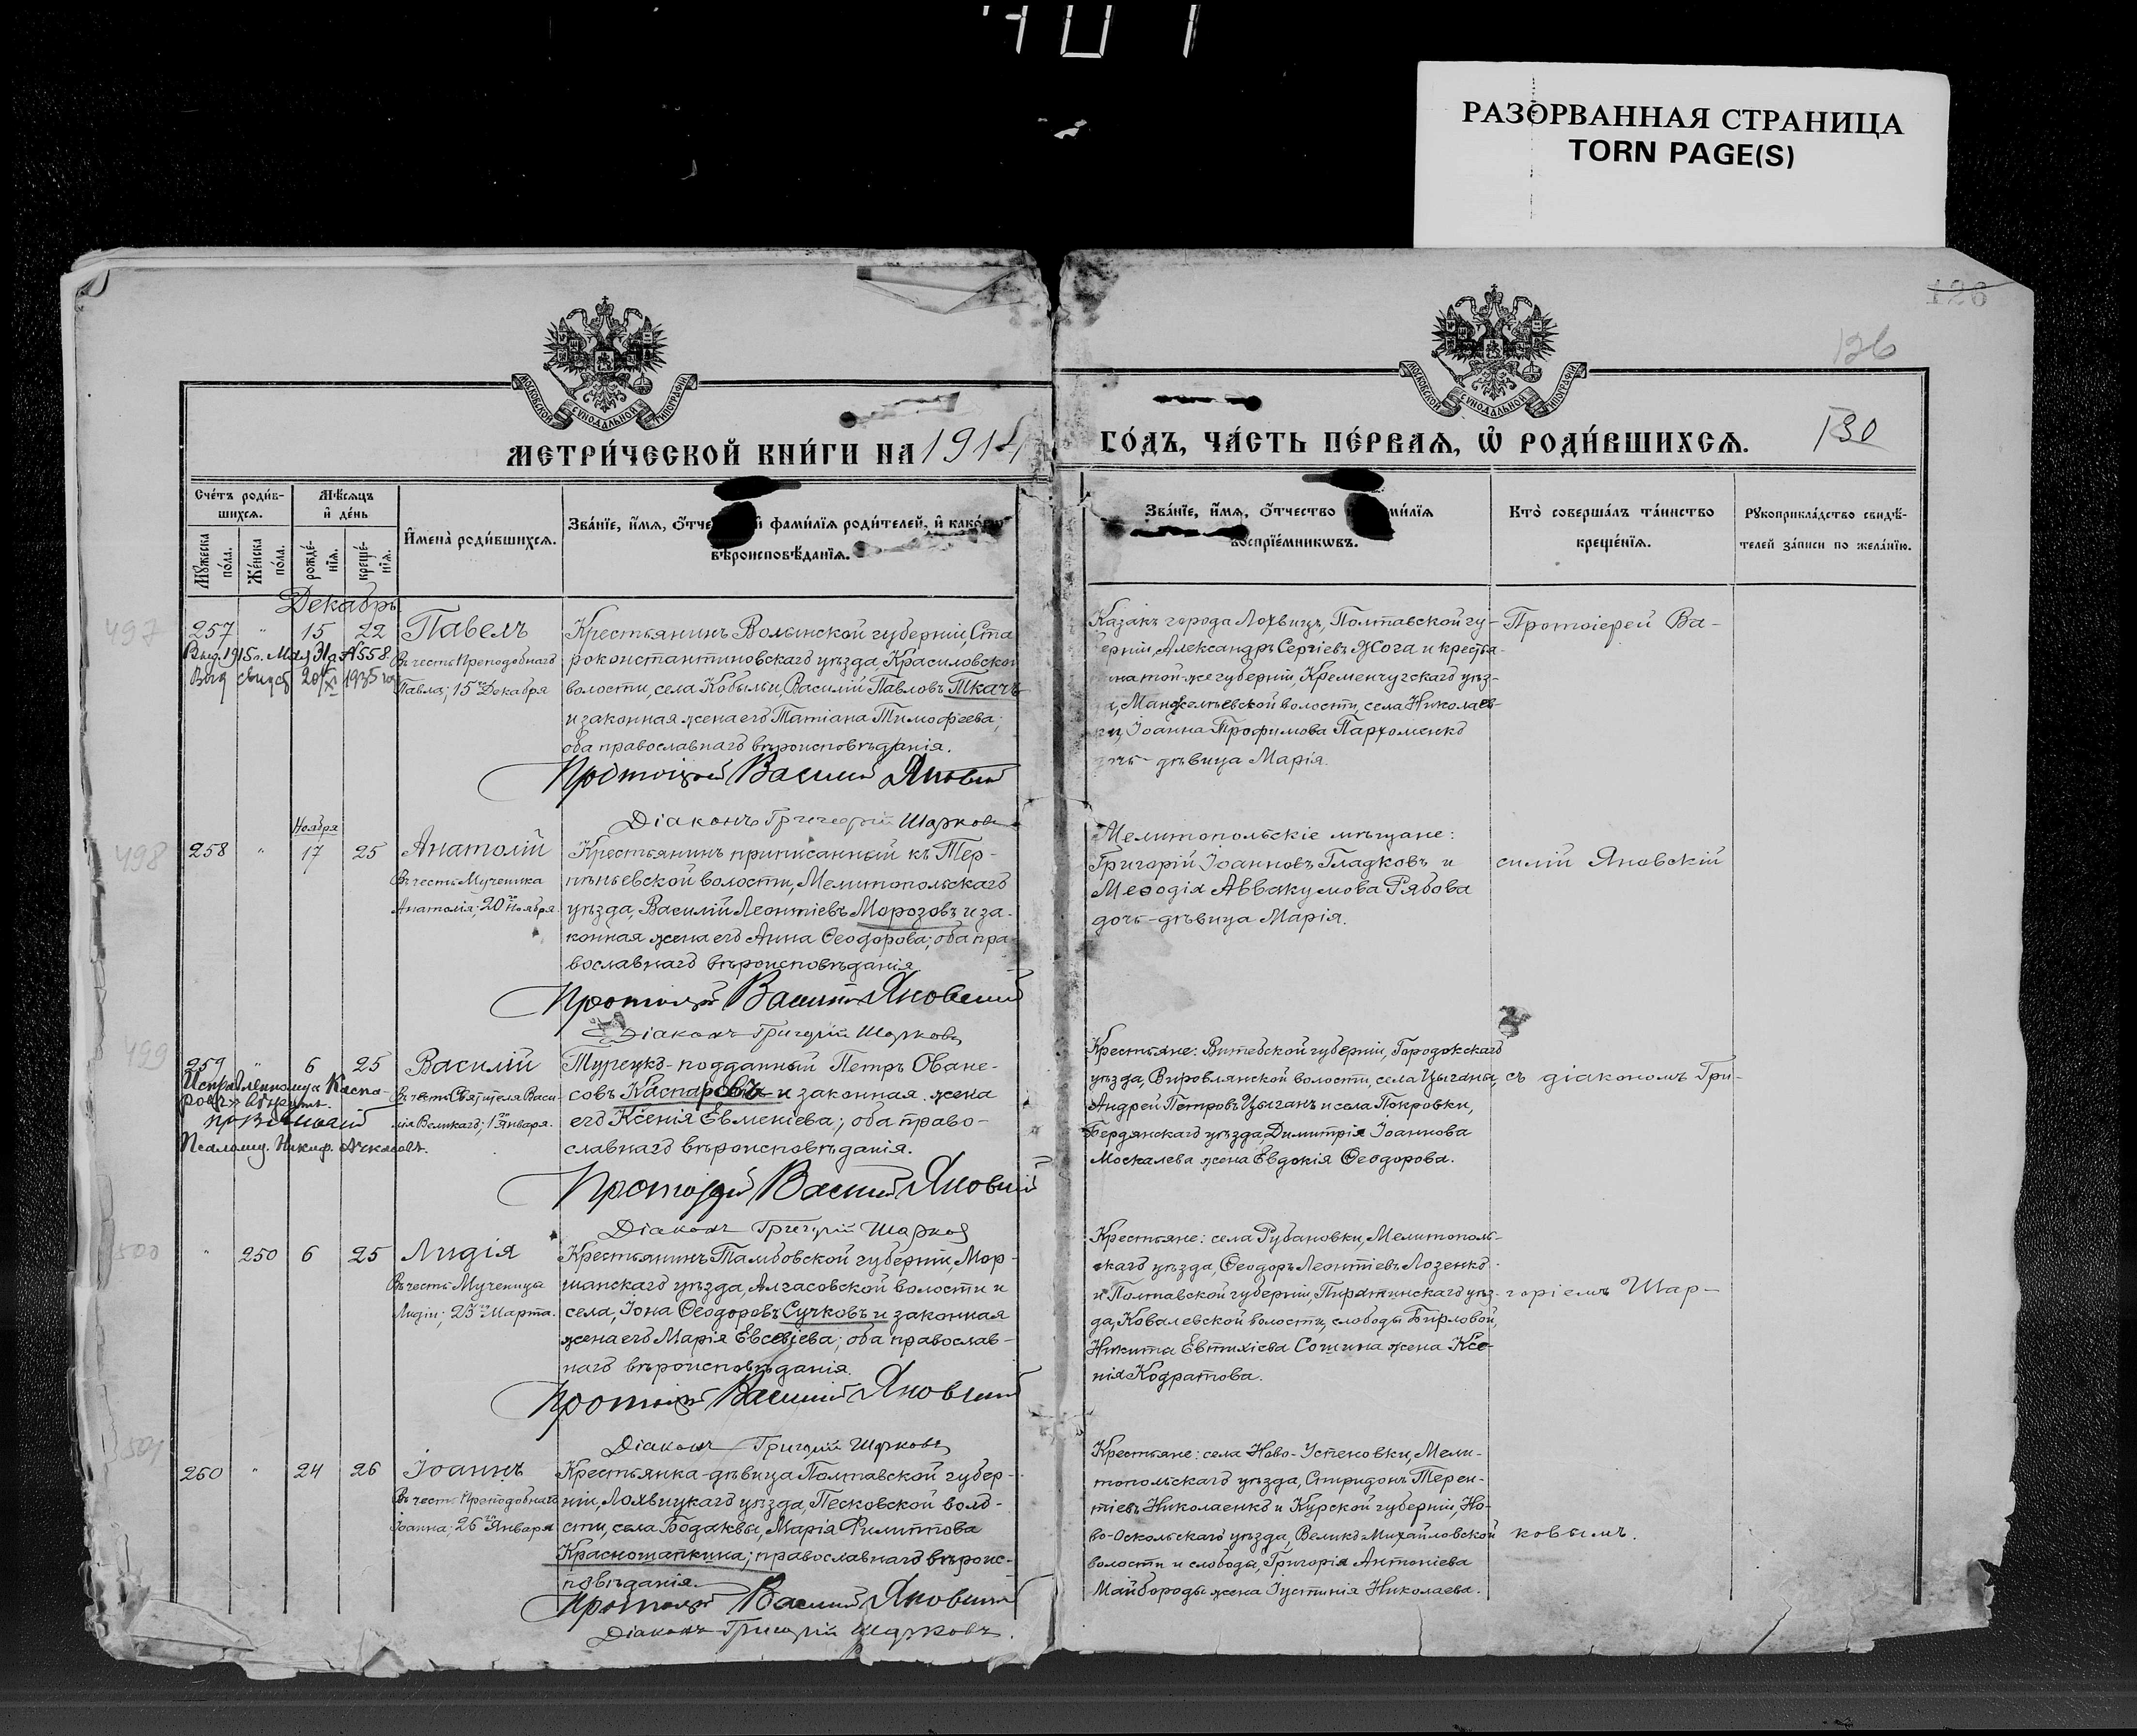 РАЗОРВАННАЯ СТРАНИЦА
TORN PAGE(S)
126
126
130
МОСКОВСКОЙ СѴНОДАЛЬНОЙ ТИПОГРАФІИ
МОСКОВСКОЙ СѴНОДАЛЬНОЙ ТИПОГРАФІИ
МЕТРИ́ЧЕСКОЙ КНИ́ГИ НА 1914
ГО́ДЪ, ЧА́СТЬ ПЕ́РВАѦ, Ѡ҆ РОДИ́ВШИХСѦ.
Сче́тъ роди́в-
шихсѧ.
Мꙋ́жеска по́ла.
Же́нска по́ла.
Мѣ́сѧцъ
и҆ де́нь
рожде́-
нїѧ.
креще́-
нїѧ.
И҆мена̀ роди́вшихсѧ.
Зва́нїе, и҆́мѧ, ѻ҆́тче и҆ фами́лїѧ роди́телей, и҆ како́гѡ
вѣроисповѣ́данїѧ.
Зва́нїе, и҆́мѧ, ѻ҆́тчество ми́лїѧ
воспрїе́мникѡвъ.
Кто̀ соверша́лъ та́инство
креще́нїѧ.
Рꙋкоприкла́дство свидѣ́-
телей за́писи по жела́нїю.
Декабрь
497
257 " 15 22
Выд. 1915 г. Мая 31 д. №558.
Выд свидет 20/XI 1935 го
Павелъ
Въ честь Преподобнаго
Павла; 15го Декабря
Крестьянинъ Волынской губерніи, Ста
роконстантиновскаго уѣзда, Красиловской
волости, села Кобыльи, Василій Павловъ Ткачъ
и законная жена его Татіана Тимофѣева;
оба православнаго вѣроисповѣданія.
Протоіерей Василій Яновскій
Діаконъ Григорій Шарковъ
Казакъ города Лохвицъ, Полтавской гу-
ерніи, Александръ Сергіевъ Жога и крестья-
на той-же губерніи, Кременчугскаго уѣз-
а, Манжелѣевской волости, села Николаев-
ки, Іоанна Трофимова Пархоменко
дочь-дѣвица Марія.
Протоіерей Ва-
498
258 "
Ноября
17 25
Анатолій
Въ честь Мученика
Анатолія; 20го Ноября.
Крестьянинъ приписанный къ Тер-
пѣньевской волости, Мелитопольскаго
уѣзда, Василій Леонтіевъ Морозовъ и за-
конная жена его Анна Ѳеодорова; оба пра-
вославнаго вѣроисповѣданія.
Протоіерей Василій Яновскій
Діаконъ Григорій Шарковъ
Мелитопольскіе мѣщане:
Григорій Іоанновъ Гладковъ и
Меѳодія Аввакумова Рябова
дочь-дѣвица Марія.
силій Яновскій
499
259 " 6 25
Исправленному Каспа-
ровъ» вѣрить.
Пр В Яновскій
Псаломщ. Никиф.
Василій
Въ честь Святителя Васи-
лія Великаго; 1го Января.
Турецко-подданный Петръ Оване-
совъ Каспаровъ и законная жена
его Ксенія Евменіева; оба право-
славнаго вѣроисповѣданія.
Протоіерей Василій Яновскій
Діаконъ Григорій Шарковъ
Крестьяне: Витебской губерніи, Городокскаго
уѣзда, Вировлянской волости, села Цыганы,
Андрей Петровъ Цыганъ и села Покровки,
Бердянскаго уѣзда, Димитрія Іоаннова
Москалева жена Евдокія Ѳеодорова.
съ діакономъ Гри-
500
" 250 6 25
Лидія
Въ честь Мученицы
Лидіи; 23го Марта.
Крестьянинъ Тамбовской губерніи, Мор-
шанскаго уѣзда, Алгасовской волости и
села, Іона Ѳеодоровъ Сучковъ и законная
жена его Марія Евсевіева; оба православ-
наго вѣроисповѣданія.
Протоіерей Василій Яновскій
Діаконъ Григорій Шарковъ
Крестьяне: села Рубановки, Мелитополь-
скаго уѣзда, Ѳеодоръ Леонтіевъ Лозенко
и Полтавской губерніи, Пирятинскаго уѣз-
да, Ковалевской волости, слободы Бирловой,
Никита Евтихіева Сошина жена Ксе-
нія Кодратова.
горіемъ Шар-
501
260 " 24 26
Іоаннъ
Въ честь Преподобнаго
Іоанна; 26го Января
Крестьянка-дѣвица Полтавской губер-
ніи, Лохвицкаго уѣзда, Песковской воло-
сти, села Бодаквы, Марія Филиппова
Красношапкина; православнаго вѣроис-
повѣданія.
Протоіерей Василій Яновскій
Діаконъ Григорій Шарковъ.
Крестьяне: села Ново-Успеновки, Мели-
топольскаго уѣзда, Спиридонъ Терен-
тіевъ Николаенко и Курской губерніи, Но-
во-Оскольскаго уѣзда, Велико Михайловской
волости и слободы, Григорія Антоніева
Майбороды жена Іустинія Николаева.
ковымъ.